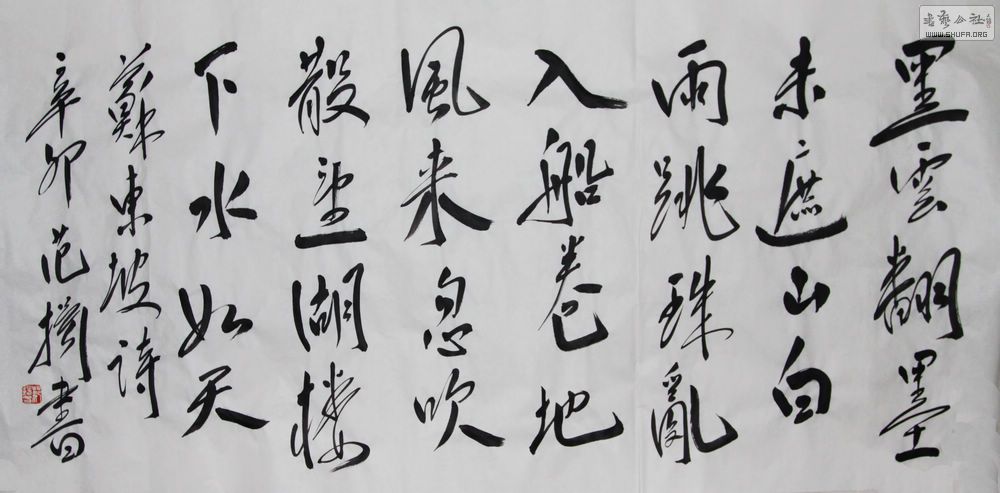 黑雲翻墨
未遮山白
雨跳珠亂
入船卷地
風来忽吹
散望湖楼
下水如天
蘇東坡詩
辛卯范書
書藝公社
WWW.SHUFA.ORG